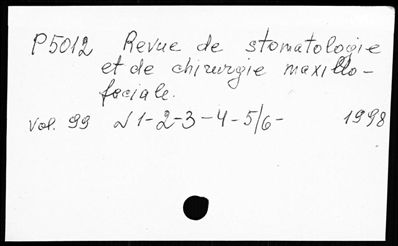 P5012 Revue de stomatologie
et de chirurgie maxillo-
faciale.
Vol. 99 N 1-2-3-4-5/6- 1998